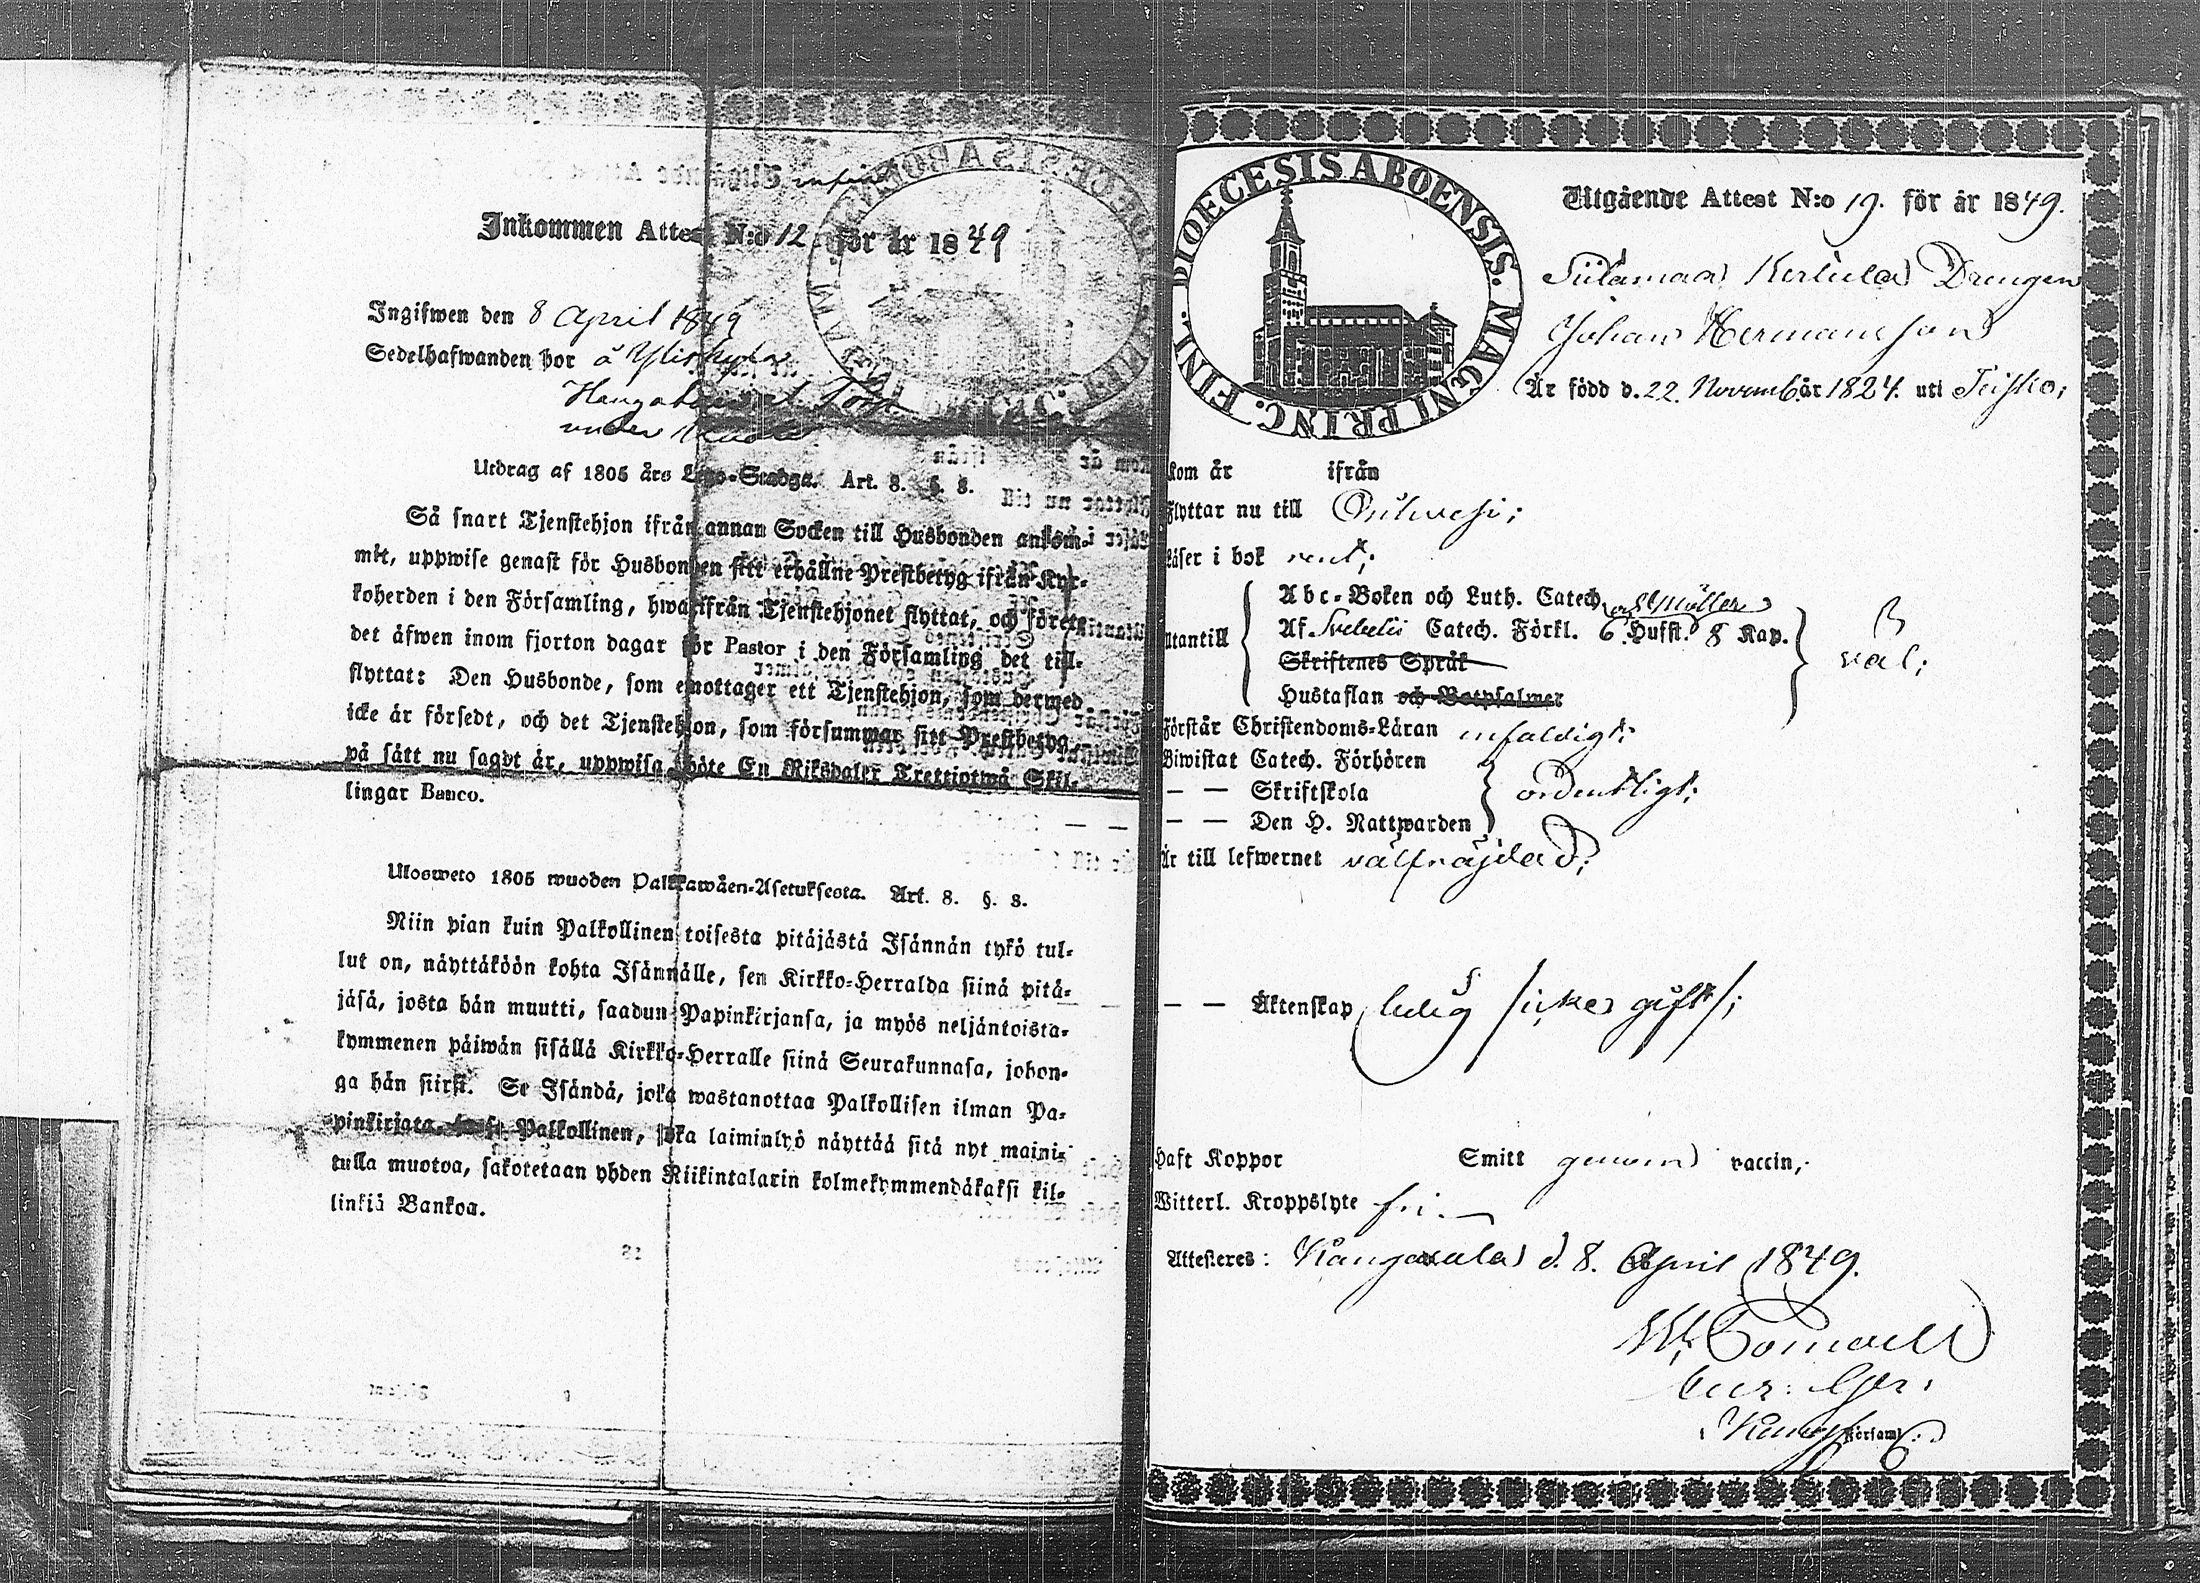 Inkommen Attest N:o 12 för år 1849
Ingifwen den 8 April 1849
Sedelhafwanden bor å Yliskylä
under
Utdrag af 1805 års Lego-Stadga. Art. 8. §. 8.
Så snart Tjenstehjon ifrån annan Socken till Husbonden ankom-
mit, uppwise genast för Husbonden sitt erhållne Prestbetyg ifrån Kyr-
koherden i den Församling, hwarifrån Tjenstehjonet flyttat, och förete
det äfwen inom fjorton dagar för Pastor i den Församling det till-
flyttat: Den Husbonde, som emottager ett Tjenstehjon, som dermed
icke är försedt, och det Tjenstehjon, som försummar sitt Prestbetyg,
på sätt nu sagdt är, uppwisa, böte En Riksdaler Trettiotwå Skil-
lingar Banco.
Ulosweto 1805 wuoden Palkkawäen-Asetuksesta. Art. 8. §. 8.
Niin pian kuin Palkollinen toisesta pitäjästä Isännän tykö tul-
lut on, näyttäköön kohta Isännälle, sen Kirkko-Herralda siinä pitä-
jäsä, josta hän muutti, saadun Papinkirjansa, ja myös neljäntoista-
kymmenen päiwän sisällä Kirkko-Herralle siinä Seurakunnasa, johon-
ga hän siirsi. Se Isändä, joka wastanottaa Palkollisen ilman Pa-
pinkirjata, Palkollinen, joka laiminlyö näyttää sitä nyt maini-
tulla muotoa, sakotetaan yhden Riikintalarin kolmekymmendäkaksi kil-
linkiä Bankoa.
DIOECESIS ABOENSIS. MAGNI PRINC. FINL.
Utgående Attest N:o 19. för år 1849.
Siilamaa Kerlula Drengen
Johan Hermansson
Är född d. 22. Novemb. år 1824. uti Teisko;
Kom år ifrån
Flyttar nu till Orihvesi;
Läser i bok rent;
Utantill
Abc-Boken och Luth. Catech. och Möller
Af Svebelii Catech. Förkl. 6 Hufst. 8 Kap.
Skriftenes Språk
Hustaflan och Botpsalmer
väl;
Förstår Christendoms-Läran enfaldigt;
Biwistat Catech. Förhören
— — Skriftskola
— — Den H. Nattwarden
ordentligt;
Är till lefwernet välfräjdad;
— — Äktenskap ledig /icke gift/;
Haft Koppor Smitt genom vaccin;
Witterl. Kroppslyte fri.
Attesteres: Kangasala d. 8. April 1849.
Församl: